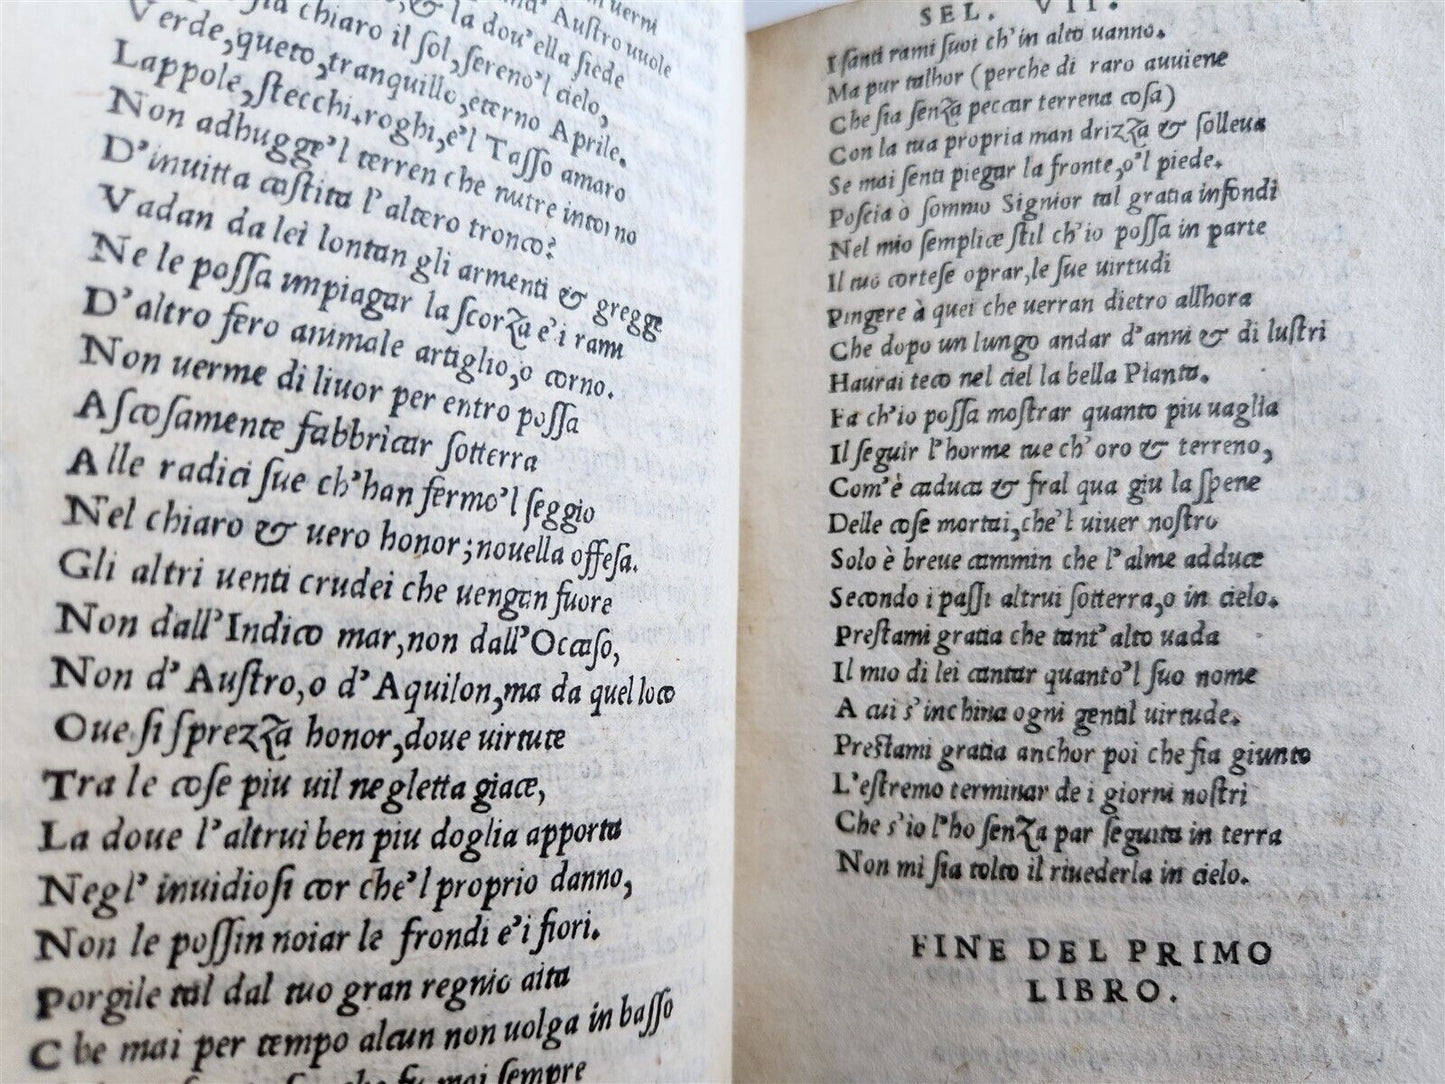 uerni
d'Austro uuole
sia chiaro il sol, & la dou'ella siede
Verde, queto, tranquillo, sereno'l cielo,
eterno Aprile.
Lappole, stecchi, roghi, e'l Tasso amaro
Non adhugge'l terren che nutre intorno
D'inuitta castita l'altero tronco?
Vadan da lei lontan gli armenti & gregge
Ne le possa impiagar la scorza e'i rami
D'altro fero animale artiglio, o corno.
Non uerme di liuor per entro possa
Ascosamente fabbricar sotterra
Alle radici sue ch'han fermo'l seggio
Nel chiaro & uero honor; nouella offesa.
Gli altri uenti crudei che uengan fuore
Non dall'Indico mar, non dall'Occaso,
Non d'Austro, o d'Aquilon, ma da quel loco
Oue si sprezza honor, doue uirtute
Tra le cose piu uil negletta giace,
La doue l'altrui ben piu doglia apporta
Negl' inuidiosi cor che'l proprio danno,
Non le possin noiar le frondi e'i fiori.
Porgile tal dal tuo gran regno aita
Che mai per tempo alcun non uolga in basso
che fu mai sempre
SEL. VII.
I santi rami suoi ch'in alto uanno.
Ma pur talhor (perche di raro auuiene
Che sia senza peccar terrena cosa)
Con la tua propria man drizza & solleua
Se mai senti piegar la fronte, o'l piede.
Poscia ò sommo Signior tal gratia infondi
Nel mio semplice stil ch'io possa in parte
Il tuo cortese oprar, le sue uirtudi
Pingere à quei che uerran dietro allhora
Che dopo un lungo andar d'anni & di lustri
Haurai teco nel ciel la bella Pianta.
Fa ch'io possa mostrar quanto piu uaglia
Il seguir l'horme tue ch'oro & terreno,
Com'è caduca & fral qua giu la spene
Delle cose mortai, che'l uiuer nostro
Solo è breue cammin che l'alme adduce
Secondo i passi altrui sotterra, o in cielo.
Prestami gratia che tant'alto uada
Il mio di lei cantar quanto'l suo nome
A cui s'inchina ogni gentil uirtude.
Prestami gratia anchor poi che fia giunto
L'estremo terminar de i giorni nostri
Che s'io l'ho senza par seguita in terra
Non mi sia tolto il riuederla in cielo.
FINE DEL PRIMO
LIBRO.